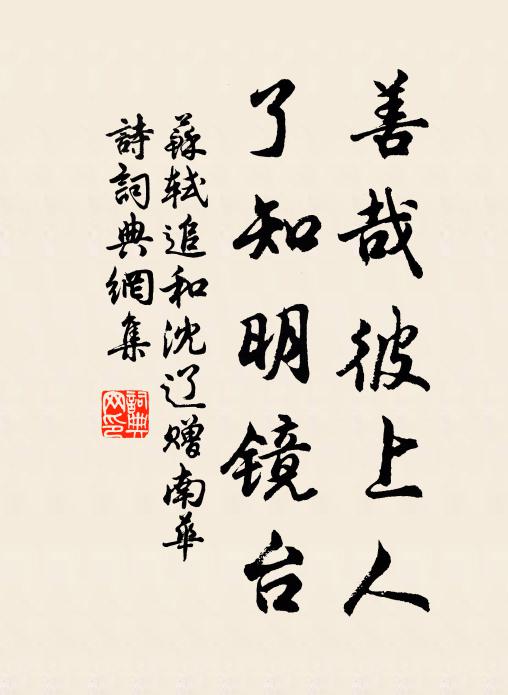 善哉彼上人
了知明镜台
蘇軾追和沈辽赠南華
詩詞典網集
詞典网印